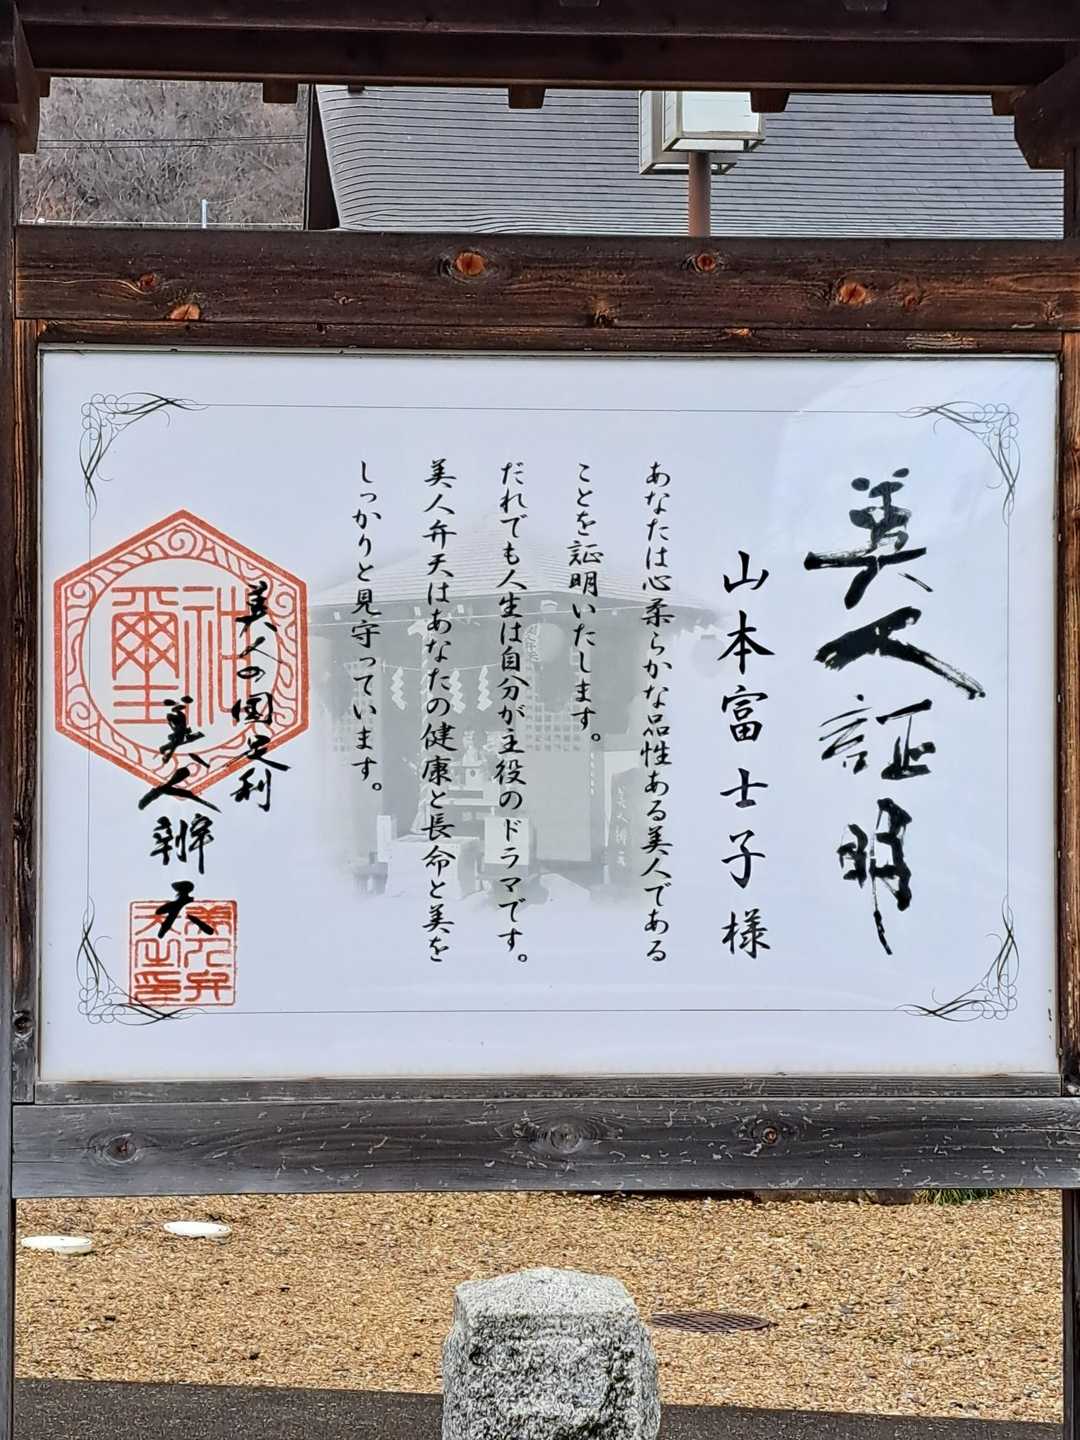 美人証明
山本富士子様
あなたは心柔らかな品性ある美人である
ことを証明いたします。
だれでも人生は自分が主役のドラマです。
美人弁天はあなたの健康と長命と美を
しっかりと見守っています。
美人の国足利
美人辨天
神璽
美人弁
天之印